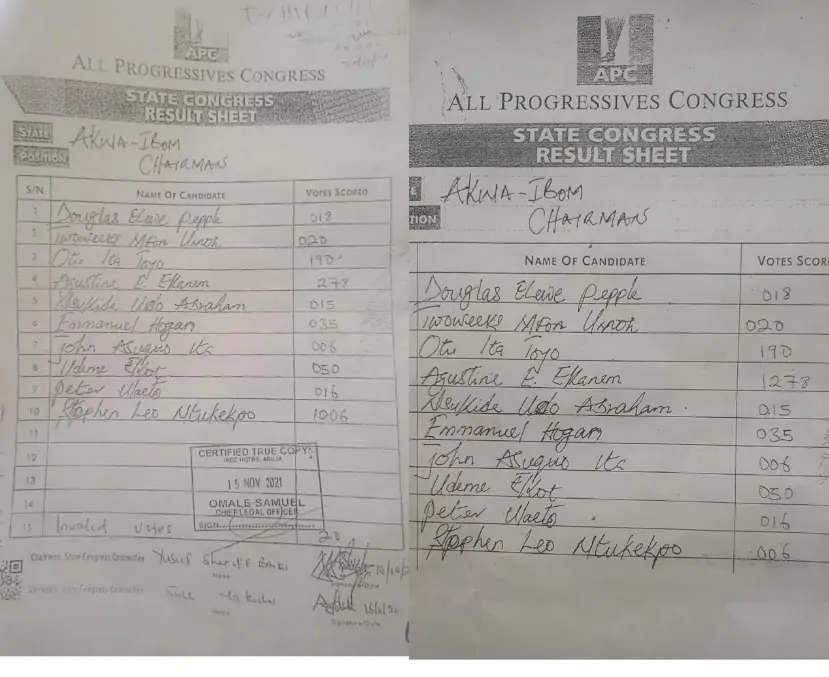 APC
ALL PROGRESSIVES CONGRESS
STATE CONGRESS
RESULT SHEET
STATE AKWA-IBOM
POSITION CHAIRMAN
S/N NAME OF CANDIDATE VOTES SCORED
1 Douglas Ekwe Pepple 018
2 Twoweeks Mfon Umoh 020
3 Otu Ita Toyo 190
4 Agustine E. Ekanem 278
5 Udo Abraham 015
6 Emmanuel Hogan 035
7 John Asuquo Ita 006
8 Udeme Ekot 050
9 Peter Uaeto 016
10 Stephen Leo Ntukekpo 1006
11
12
13
14
15 Invalid votes 20
CERTIFIED TRUE COPY
INEC HQTRS, ABUJA
15 NOV 2021
OMALE SAMUEL
CHIEF LEGAL OFFICER
SIGN
Chairman, State Congress Committee Yusuf Sheriff Banki
Name
Signature/Date
Secretary, State Congress Committee
Name
Signature/Date
APC
ALL PROGRESSIVES CONGRESS
STATE CONGRESS
RESULT SHEET
E AKWA-IBOM
TION CHAIRMAN
NAME OF CANDIDATE VOTES SCOR
Douglas Ekwe Pepple 018
Twoweeks Mfon Umoh 020
Otu Ita Toyo 190
Agustine E. Ekanem 1278
Udo Abraham 015
Emmanuel Hogan 035
John Asuquo Ita 006
Udeme Ekot 050
Peter Uaeto 016
Stephen Leo Ntukekpo 006